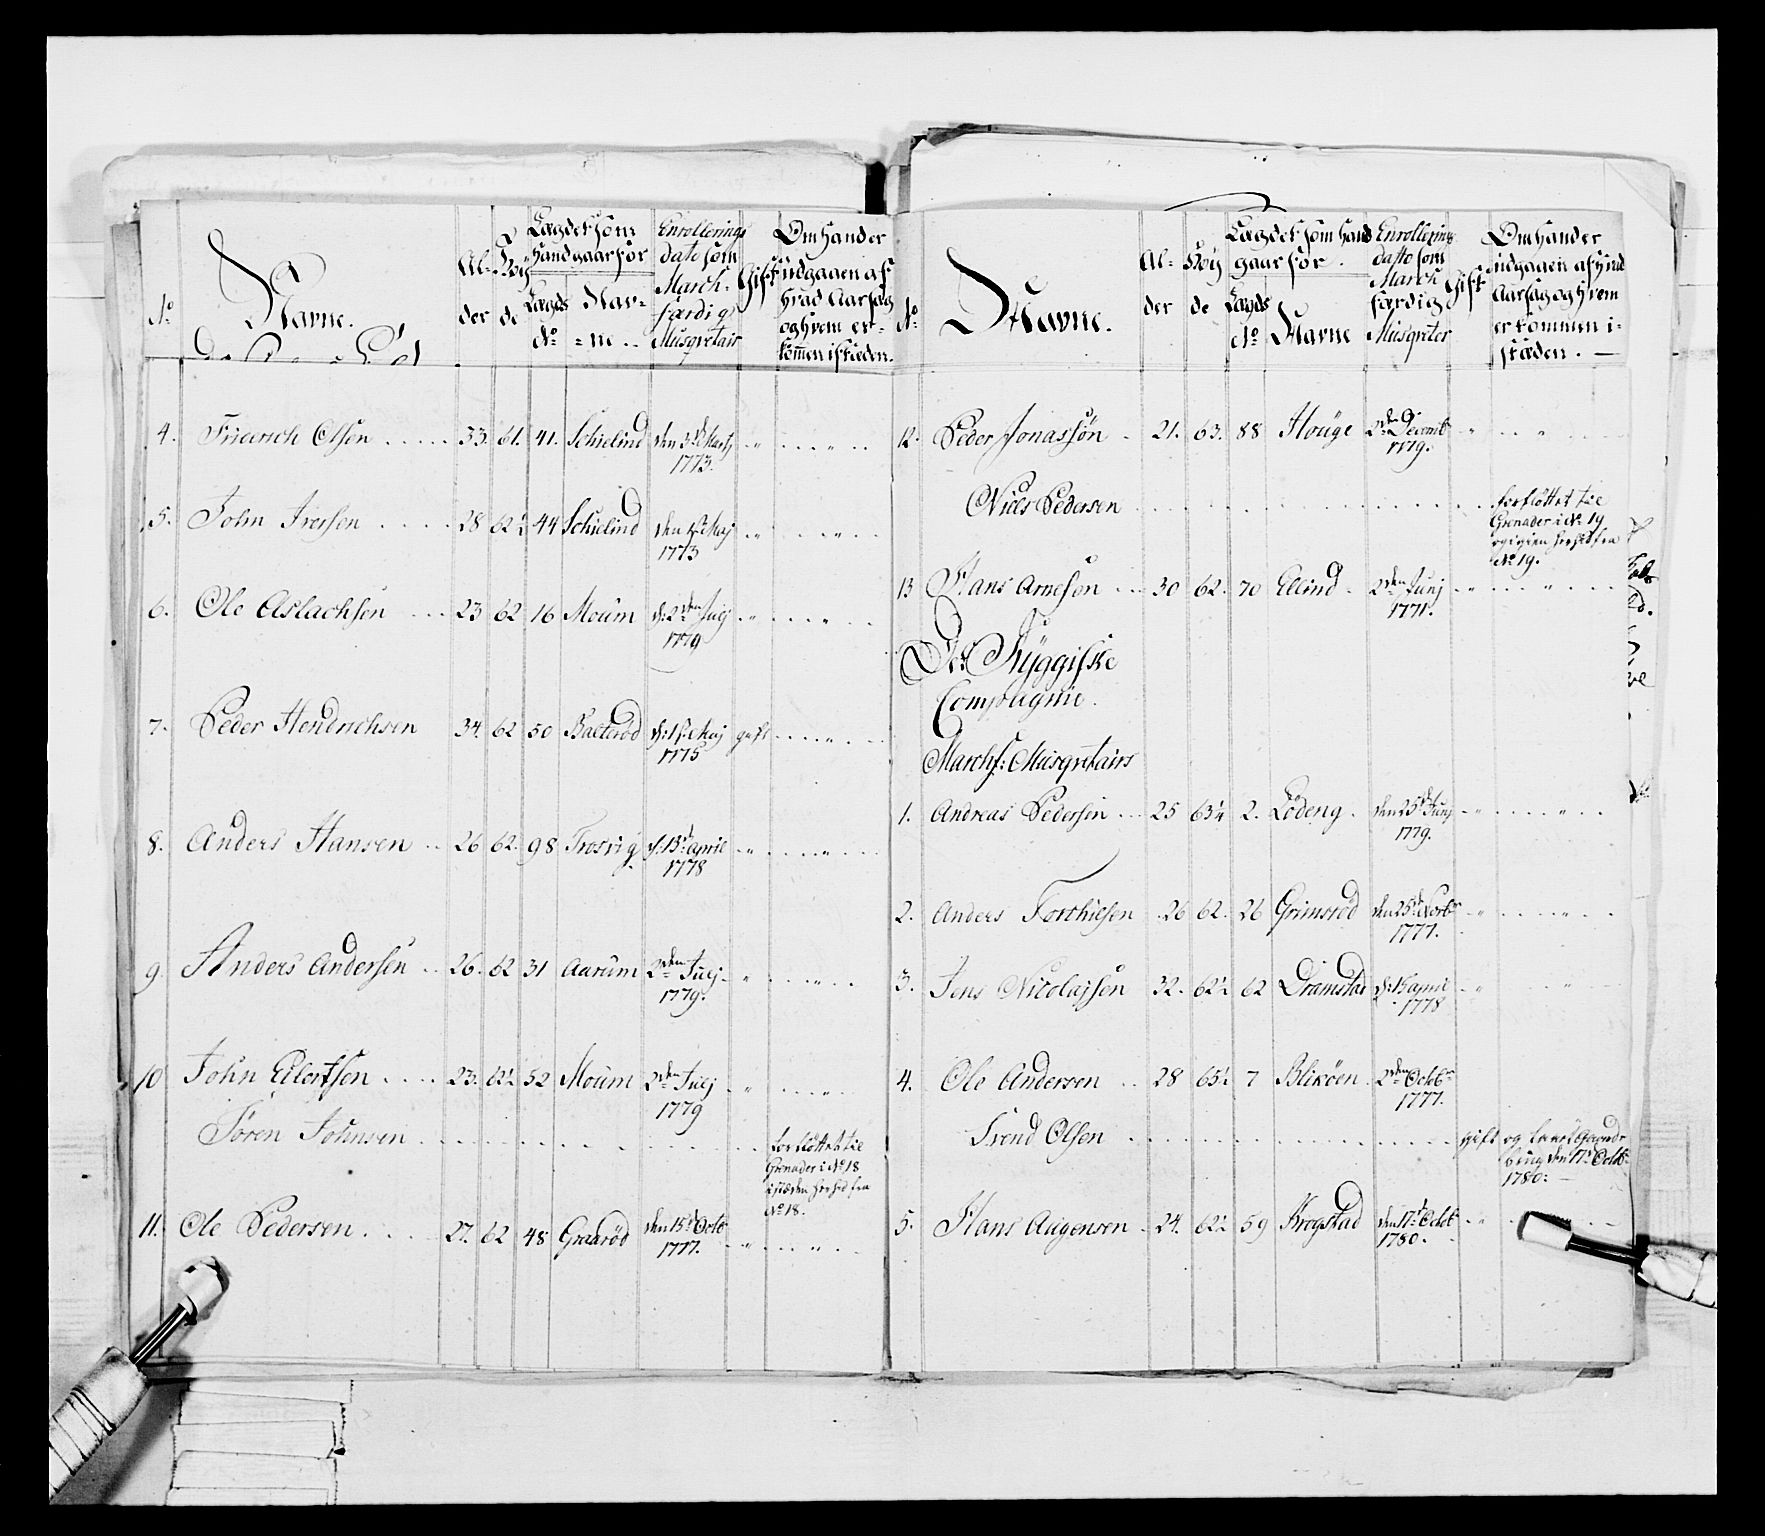 No
Navne.
Al-
der
Høy
de
Lægdet som
Hand gaar for
Lægds
No
Nav-
ne
Enrollerings
dato som
March-
færdig
Musqvetair
Gift
Om Hand er
udgaaen af
hvad Aarsag
og hvem er
kommen i stæden.
4. Friderich Olsen 33. 61. 41. Schielind den 3de Martz
1773.
5. John Iversen 28 62½ 44 Schielind den 1ste Maj
1773
6. Ole Aslachsen 23 62 16 Moum d: 2den Julj
1779
7. Peder Hendrichsen 34. 62 50 Balterød d: 1ste Maj gift
1775
8. Anders Hansen 26 62. 98 Trosvig d: 13de april
1778
9. Anders Andersen 26. 62 31 Aarum 2den Julj
1779.
10 John Eilertsen 23. 62½ 52 Moum 2den Julj
1779
Søren Johnsen forflöttet til
Grenader i No 18
i stæden herhid fra
No 18.
11. Ole Pedersen 27. 62 48 Graarød den 15de Octbr
1777.
No
Navne.
Al-
der
Høy
de
Lægdet som Hand
gaar for
Lægds
No
Navne
Enrollering
datto som
March
færdig
Musqveter
Gift
Om Hand er
udgaaen af hvad
Aarsag og hvem
er kommen i
stæden.
12. Peder Jonassøn 21. 63. 88 Houge 2den Decembr
1779.
Niels Pedersen forflöttet til
Grenader i No 19
og igien herhid fra
No 19.
13 Hans Arnesøn 30 62. 70 Elind 2den Junj
1771.
Det Ryggiske
Compagnie.
Marchf: Musqvetairs
1. Andreas Pedersen 25 63¼ 2. Lödeng den 25de Junj
1779.
2. Anders Torkielsen 26 62. 26 Grimsrød den 25de Novbr
1777.
3. Jens Nicolajsen 32. 62½ 62 Dramstad d: 15 april
1778
4. Ole Andersen 28 65½ 7 Blixöen 2den Octobr
1777.
Trond Olsen gift og faaet Gaard
brug den 17de Octbr
1780:
5. Hans Augensen 24. 62½ 59 Krogstad den 17de Octbr
1780.